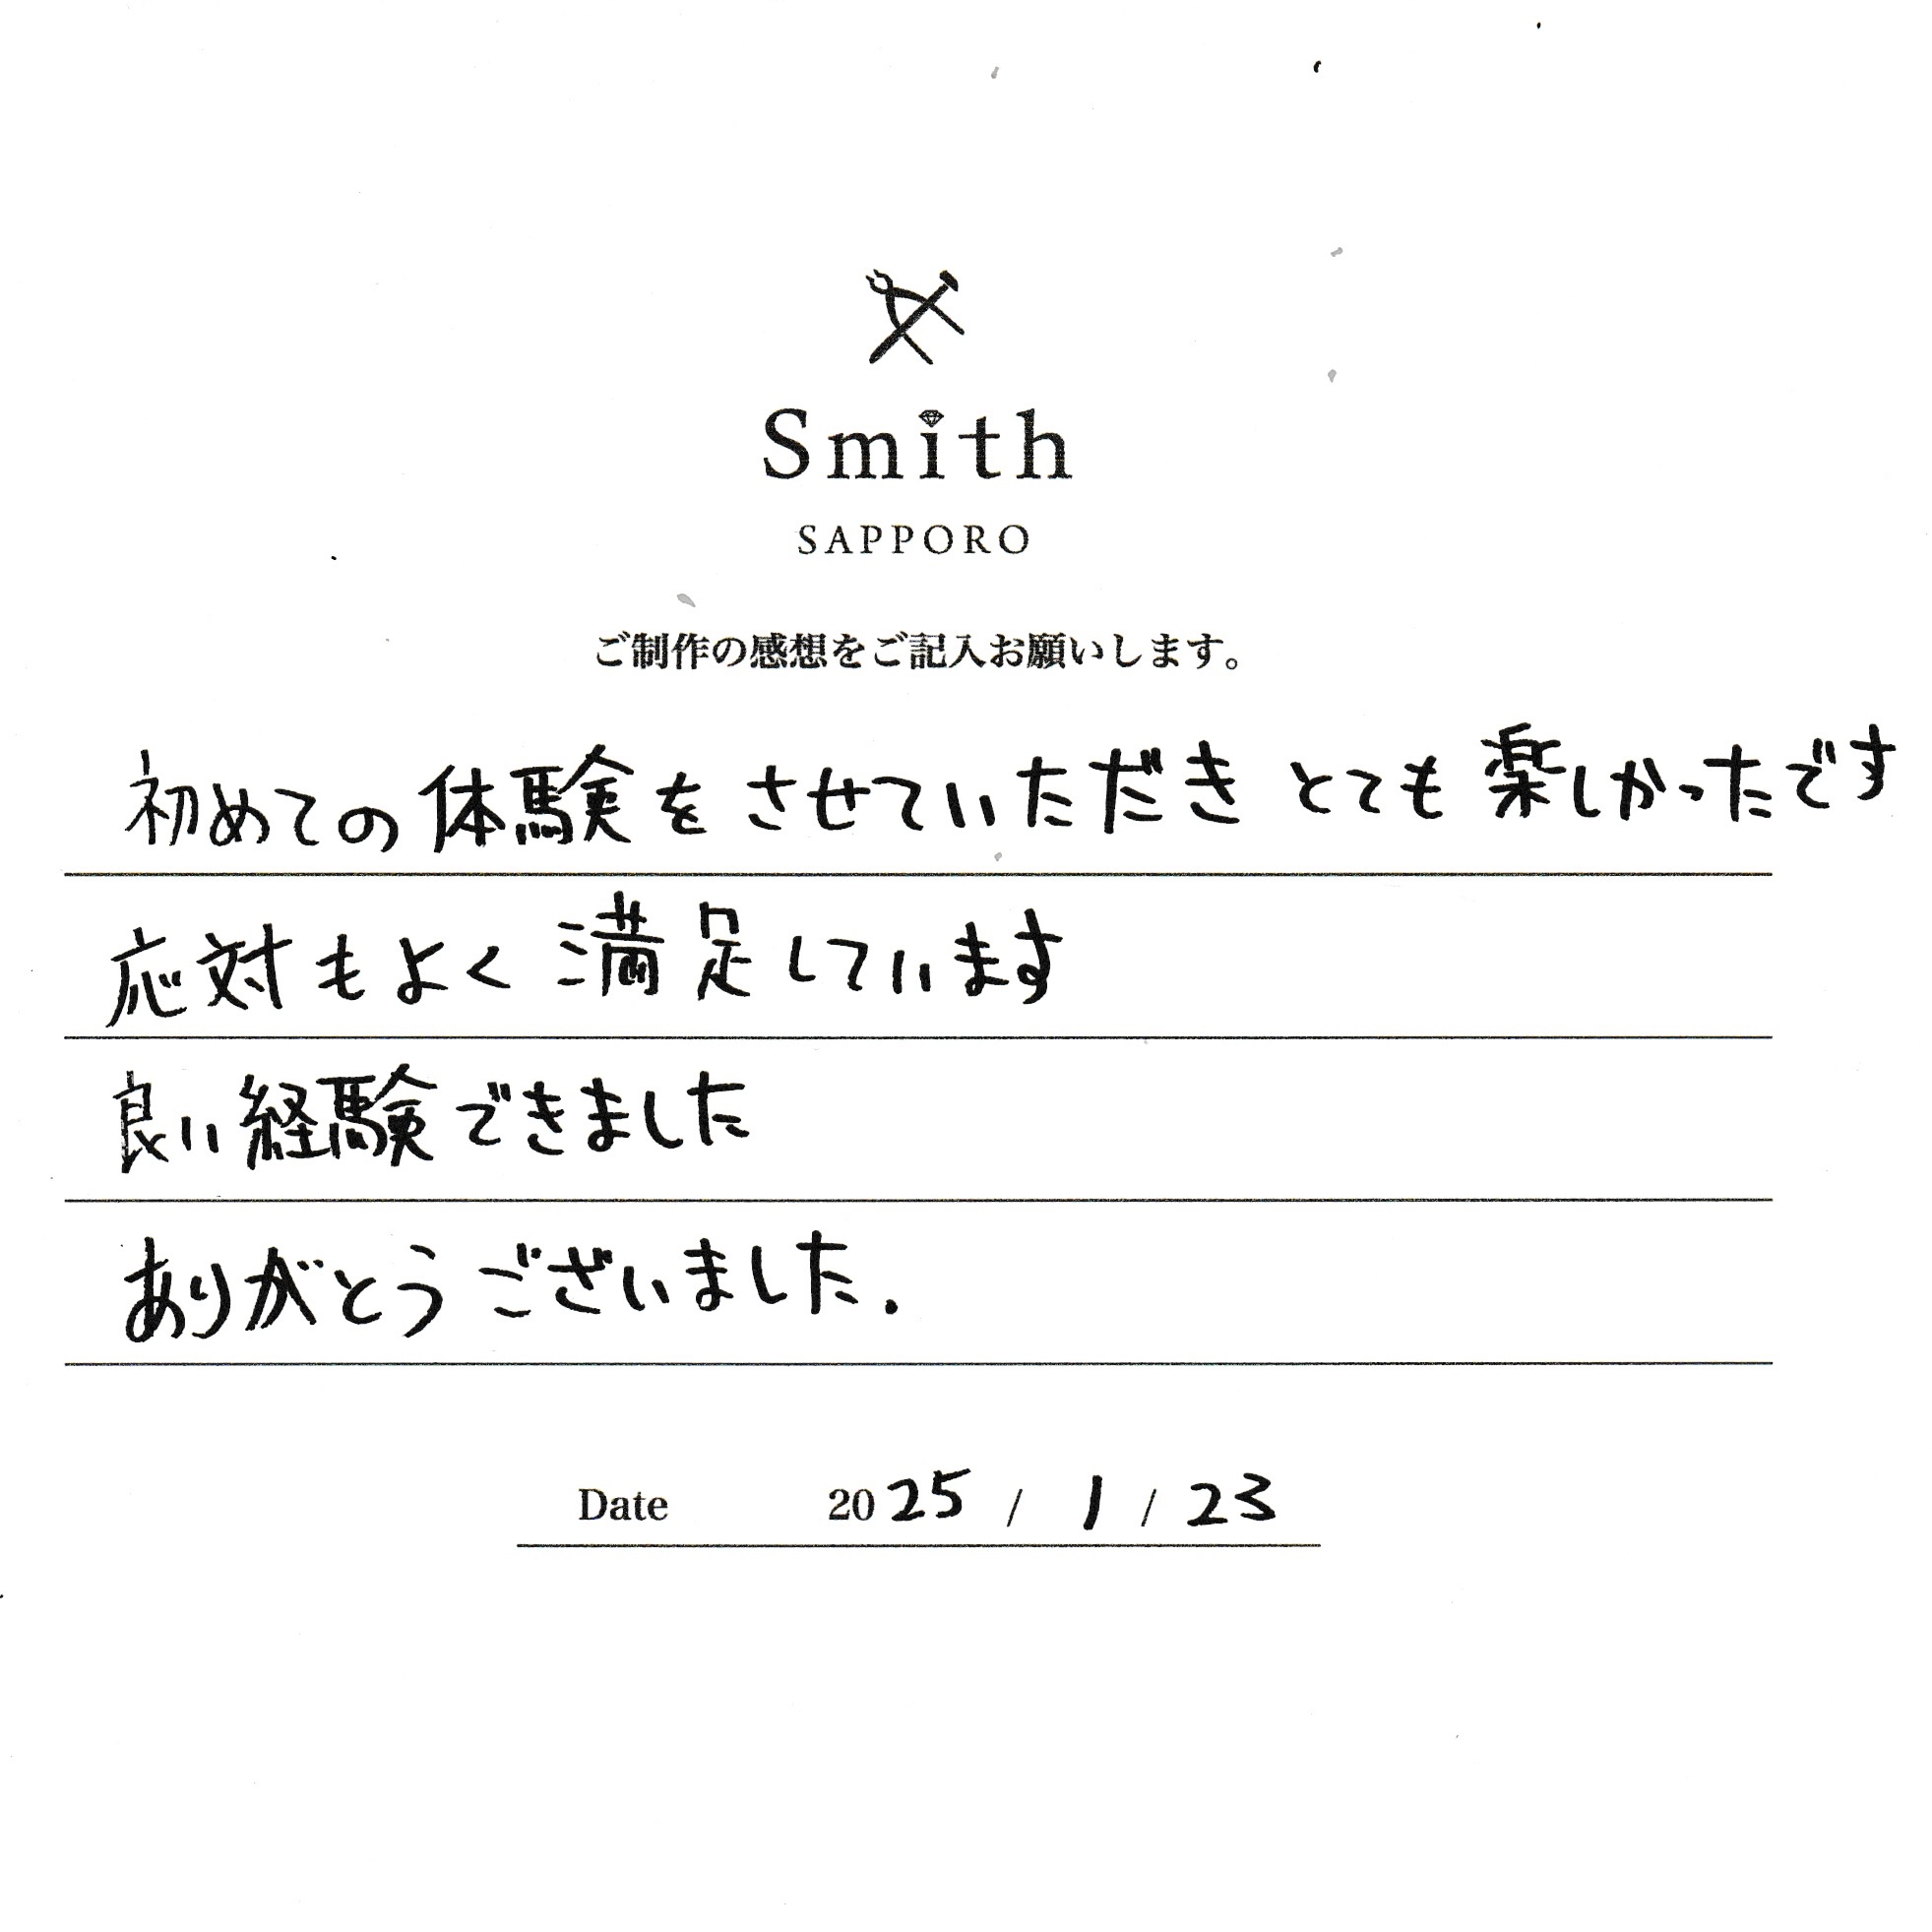 Smith
SAPPORO
ご制作の感想をご記入お願いします。
初めての体験をさせていただきとても楽しかったです
応対もよく満足しています
良い経験できました
ありがとうございました.
Date 2025 / 1 / 23